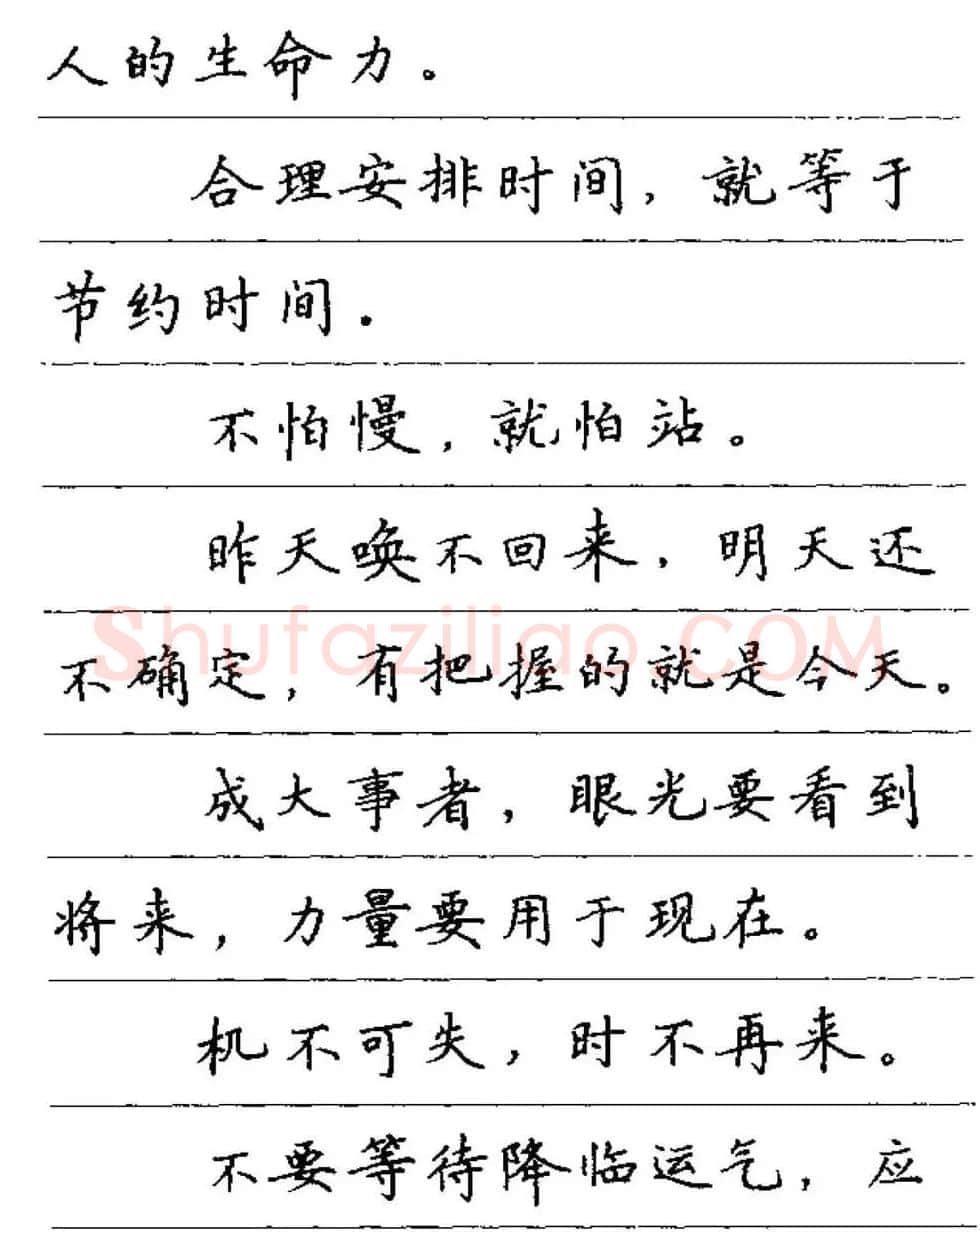 人的生命力。
合理安排时间，就等于
节约时间.
不怕慢，就怕站。
昨天唤不回来，明天还
不确定，有把握的就是今天。
成大事者，眼光要看到
将来，力量要用于现在。
机不可失，时不再来。
不要等待降临运气，应
Shufaziliao.COM